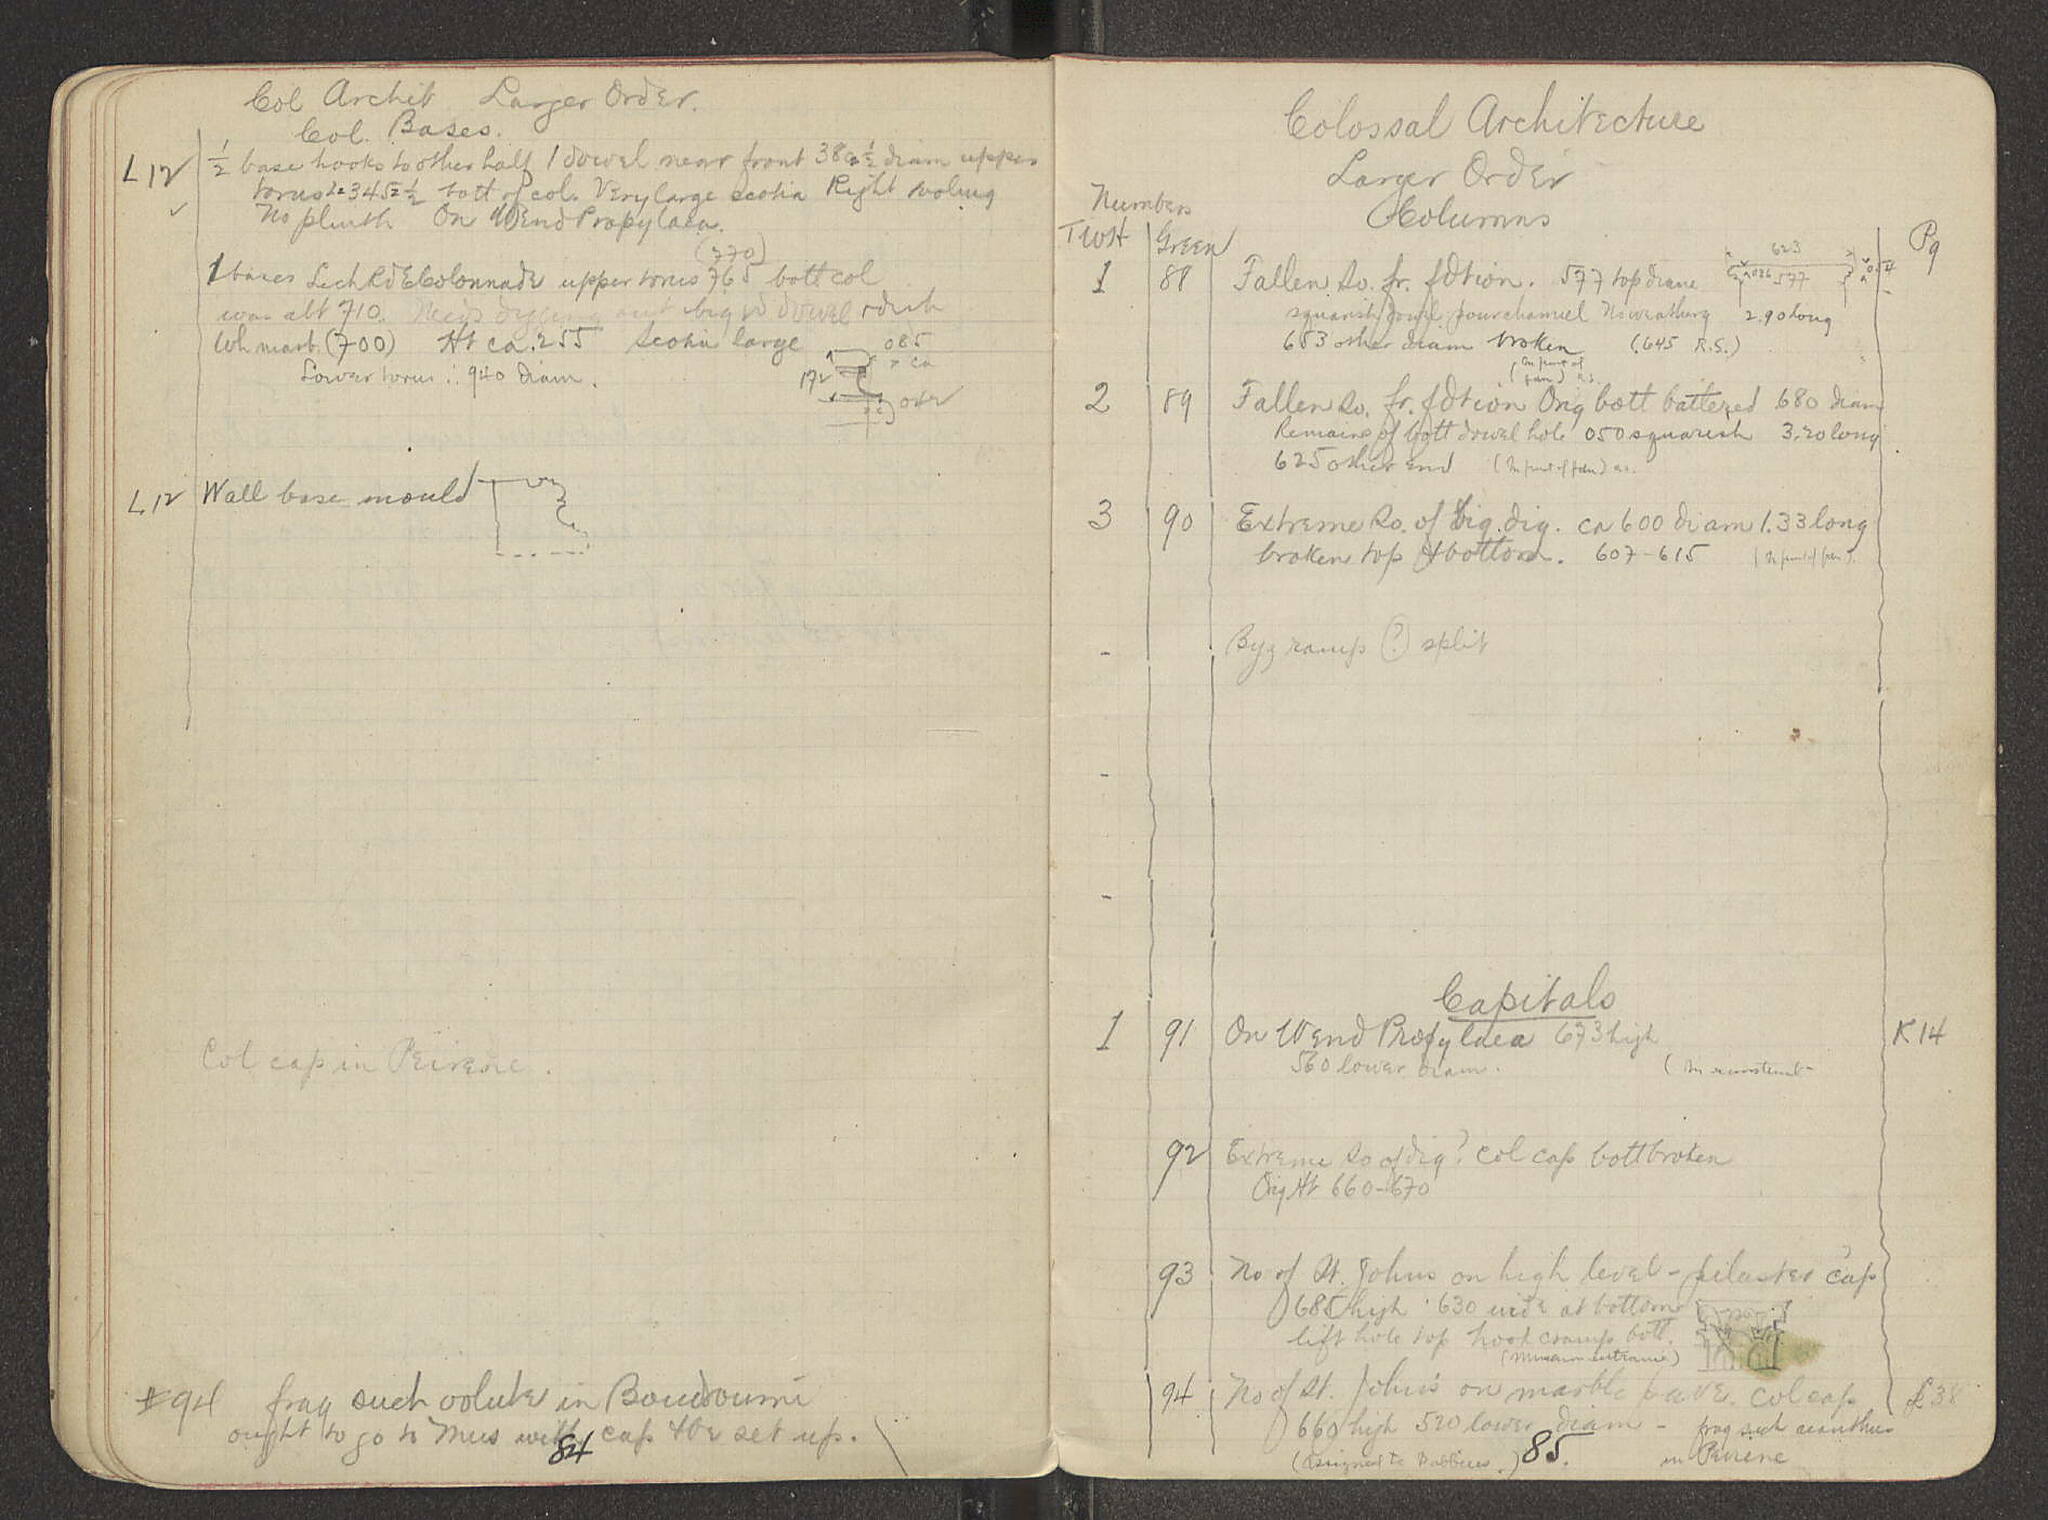 Col Archit Larger Order.
Col. Bases.
L 12 ½ base hooks to other half 1 dowel near front 380 ½ diam upper
torus 345 ½ bott of col. Very large scotia Right
No plinth On W End Propylaea.
(770)
1 bases Lech Rd E Colonnade upper torus 765 bott col
was abt 710. big dowel
Wh marb. (700) Ht ca .255 Scotia large 085
ca
Lower torus ∴ 940 diam. 172
L 12 Wall base mould
Col cap in Peirene.
#94 frag such volute in Boudroumi
ought to go to Mus with cap & be set up.
84
Colossal Architecture
Larger Order
Columns
Numbers
TWH Green Pg
1 88 Fallen So. fr. fdtion. 577 top diam 623
026 577
squarish dowel, pour channel No weathering 2.90 long
653 other diam broken (.645 R.S.)
(In front of
2 89 Fallen So. fr. fdtion Orig bott battered 680 diam
Remains of bott dowel hole 050 squarish 3.20 long
625 other end (In front of
3 90 Extreme So. of big. dig. ca 600 diam 1.33 long
broken top & bottom. 607-615 (In front of
- Byz ramp (?) split
-
-
Capitals
1 91 On W End Propylaea 673 high K 14
560 lower diam.
92 Extreme So of dig? col cap bott broken
Orig Ht 660-670
93 No of St. Johns on high level - pilaster cap
685 high 630 wide at bottom
lift hole top hook cramp bott.
(Museum entrance)
94 No of St. John's on marble pave. col cap L 38
660 high 520 lower diam - frag such acanthus
(assigned to ) 85. in Peirene